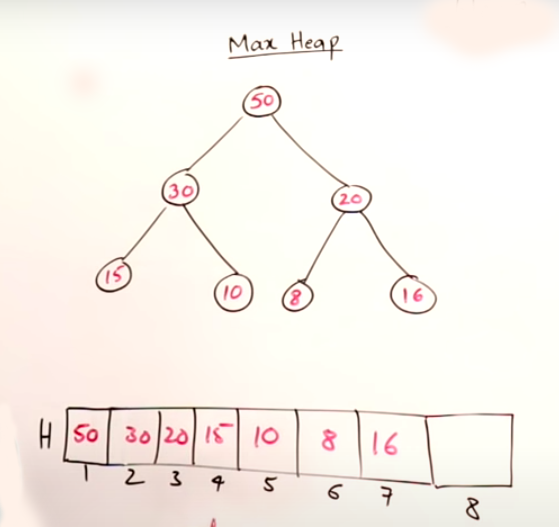 Max Heap
50
30 20
15 10 8 16
H 50 30 20 15 10 8 16
1 2 3 4 5 6 7 8